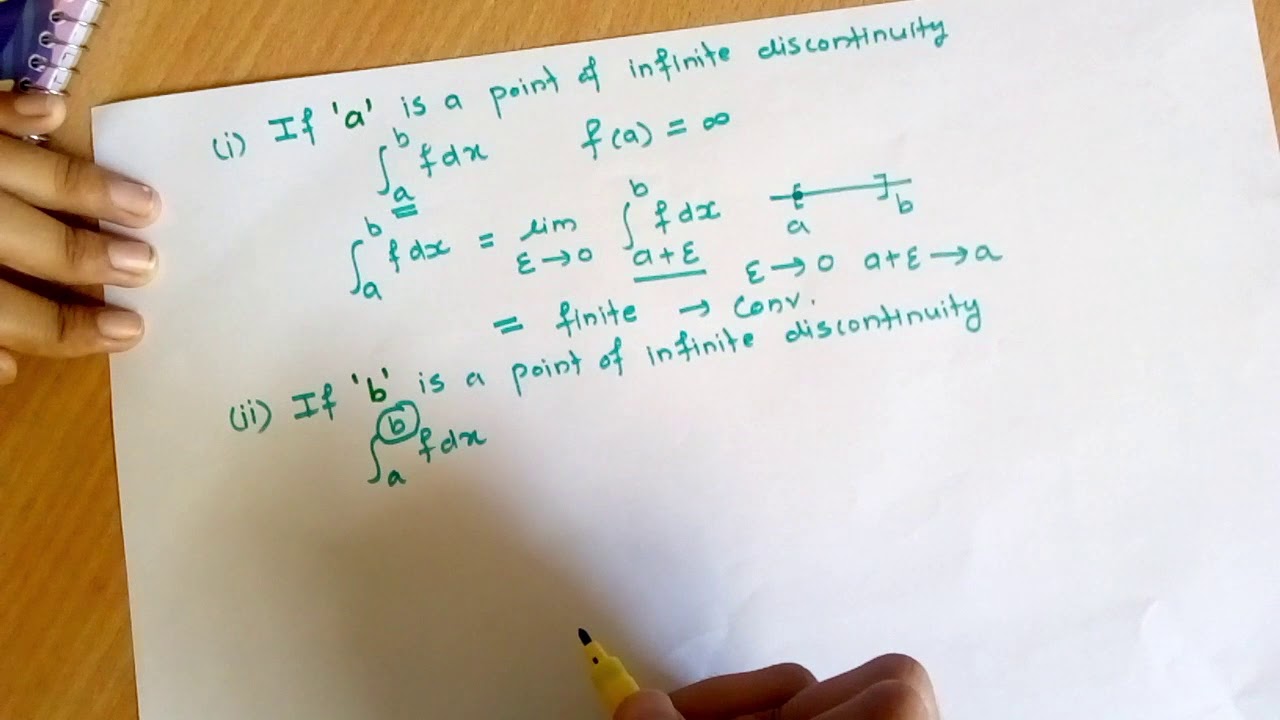 (i) If 'a' is a point of infinite discontinuity
∫_a^b f dx f(a) = ∞
∫_a^b f dx = lim_{ε→0} ∫_{a+ε}^b f dx a b
ε→0 a+ε→a
= finite → Conv.
(ii) If 'b' is a point of infinite discontinuity
∫_a^b f dx